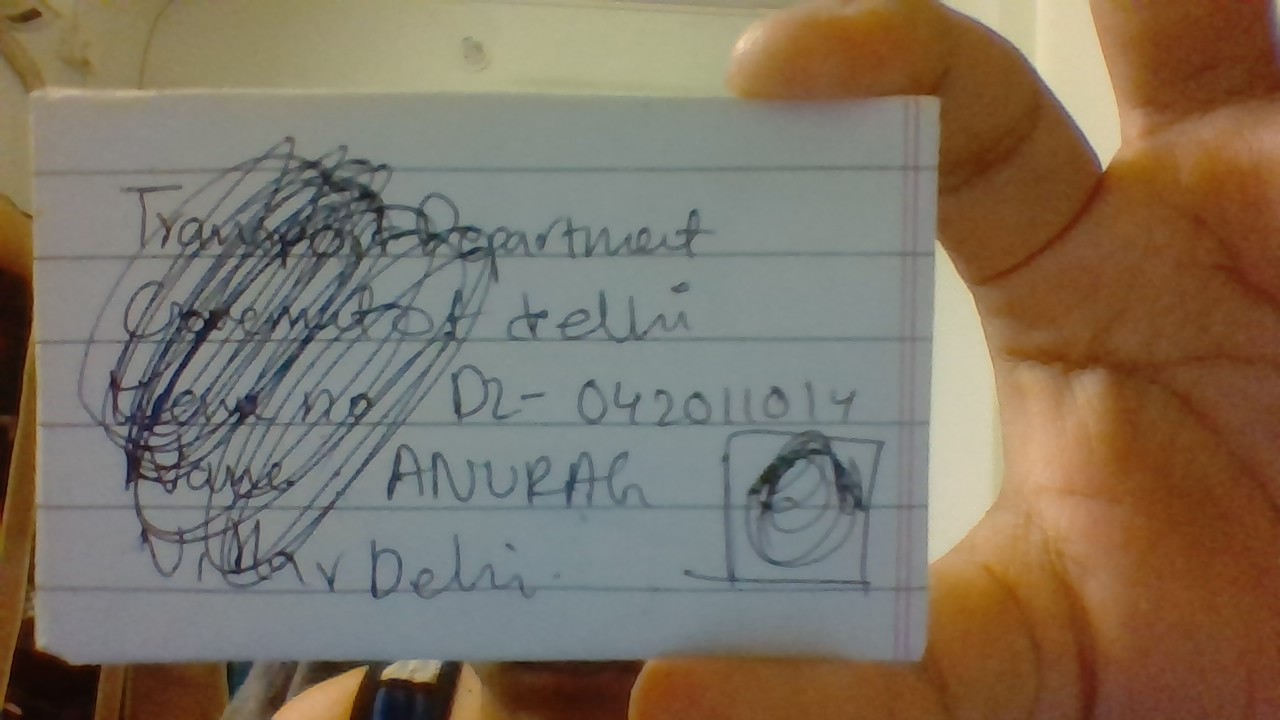 Transport Department
Government of delhi
no DL- 042011014
Name ANURAG
Delhi